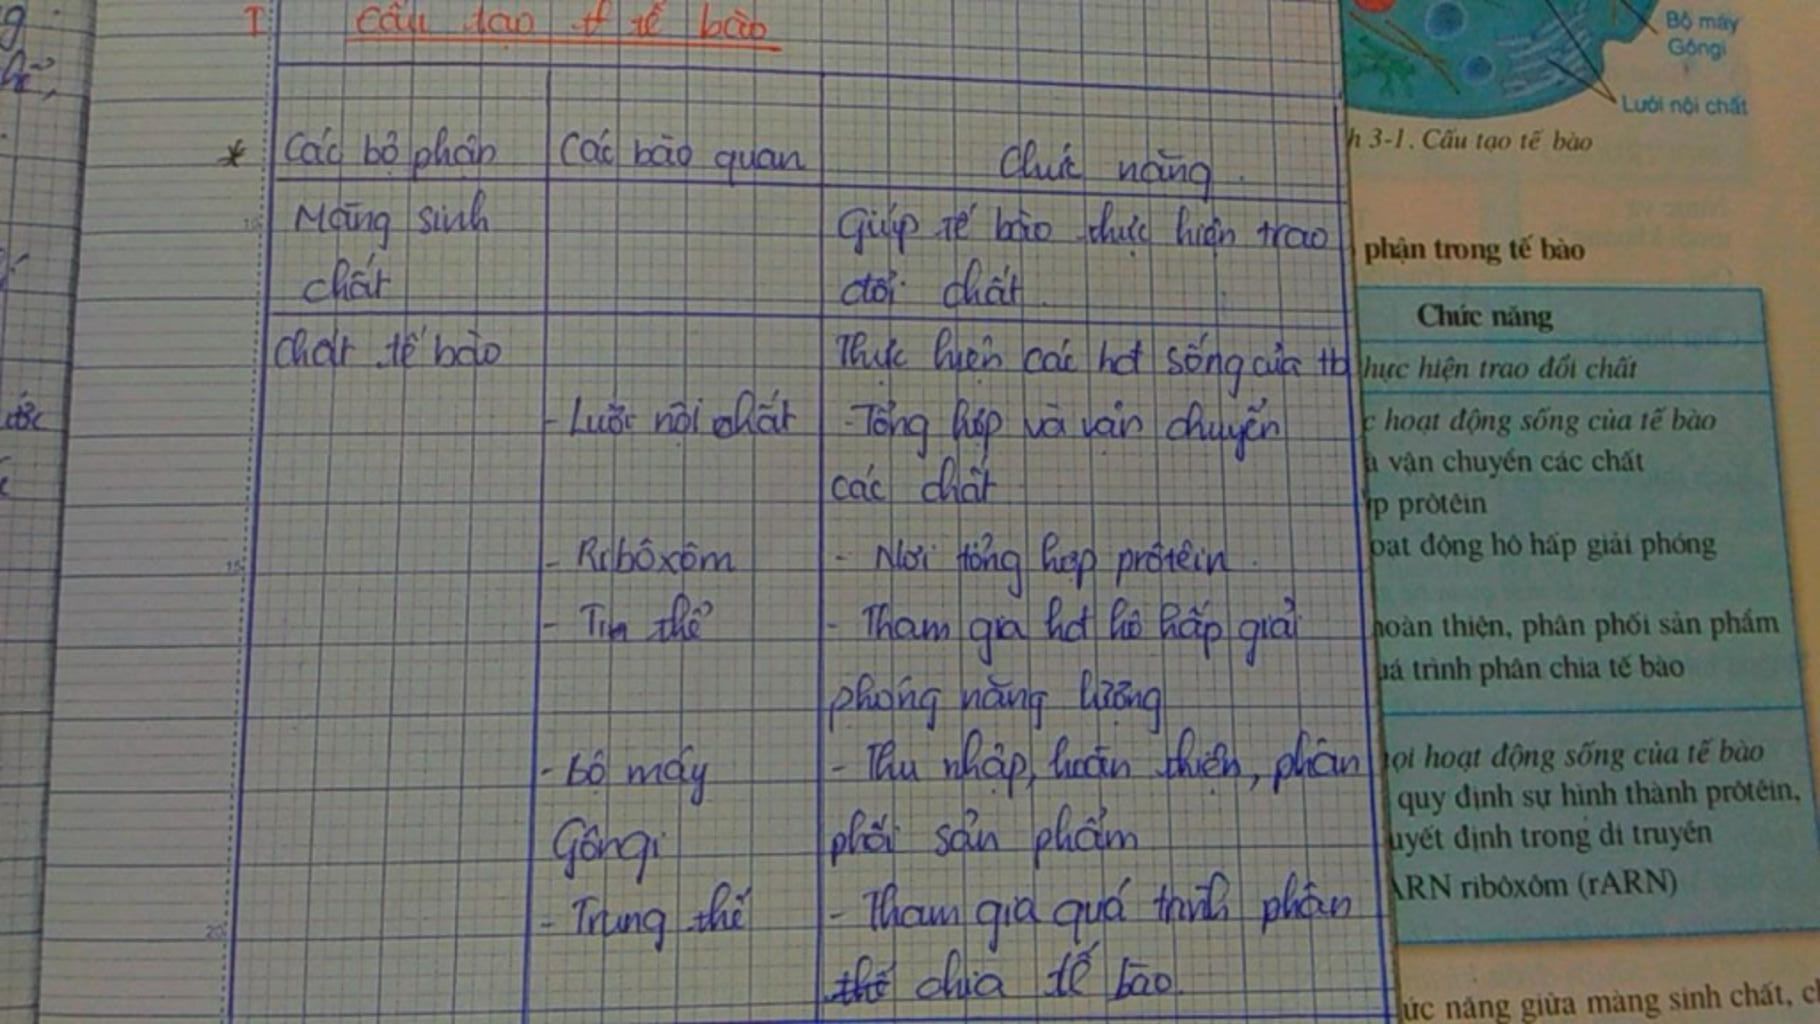 I Cấu tạo tế bào
* Các bộ phận Các bào quan Chức năng
Màng sinh Giúp tế bào thực hiện trao
chất đổi chất
Chất tế bào Thực hiện các hđ sống của tb
- Lưới nội chất - Tổng hợp và vận chuyển
các chất
- Ribôxôm - Nơi tổng hợp prôtêin
- Tin thể - Tham gia hđ hô hấp giải
phóng năng lượng
- Bộ máy - Thu nhập, hoàn thiện, phân
Gôngi phối sản phẩm
- Trung thể - Tham gia quá trình phân
chia tế bào
Bộ máy
Gôngi
Lưới nội chất
h 3-1. Cấu tạo tế bào
phận trong tế bào
Chức năng
hực hiện trao đổi chất
c hoạt động sống của tế bào
à vận chuyển các chất
p prôtêin
oạt động hô hấp giải phóng
hoàn thiện, phân phối sản phẩm
uá trình phân chia tế bào
ọi hoạt động sống của tế bào
quy định sự hình thành prôtêin,
uyết định trong di truyền
ARN ribôxôm (rARN)
ức năng giữa màng sinh chất, ch